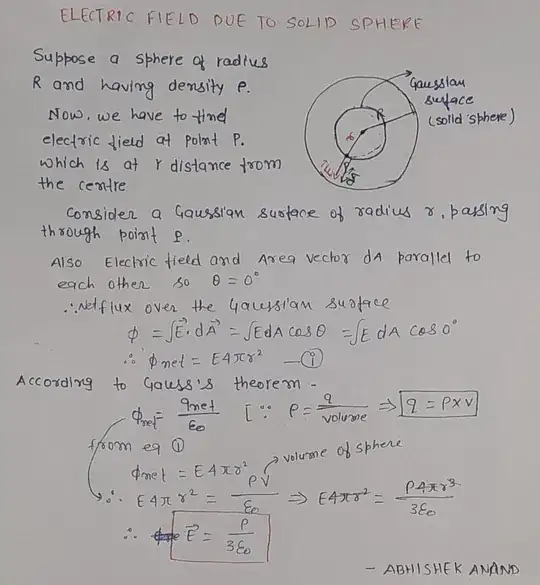 ELECTRIC FIELD DUE TO SOLID SPHERE
Suppose a sphere of radius
R and having density ρ.
Now, we have to find
electric field at point P.
which is at r distance from
the centre
Gaussian
surface
(solid sphere)
R
r
Consider a Gaussian surface of radius r, passing
through point P.
Also Electric field and Area vector dA parallel to
each other so θ = 0°
∴ Net flux over the Gaussian surface
ϕ = ∫E⃗. dA⃗ = ∫EdA cos θ = ∫E dA cos 0°
∴ ϕnet = E4πr² —①
According to Gauss's theorem -
ϕnet = qnet/ε₀ [∵ ρ = q/volume ⇒ q = ρ×V
from eq ①
volume of sphere
ϕnet = E4πr²
∴ E4πr² = ρV/ε₀ ⇒ E4πr² = ρ4πr³/3ε₀
∴ E⃗ = ρ/3ε₀
- ABHISHEK ANAND